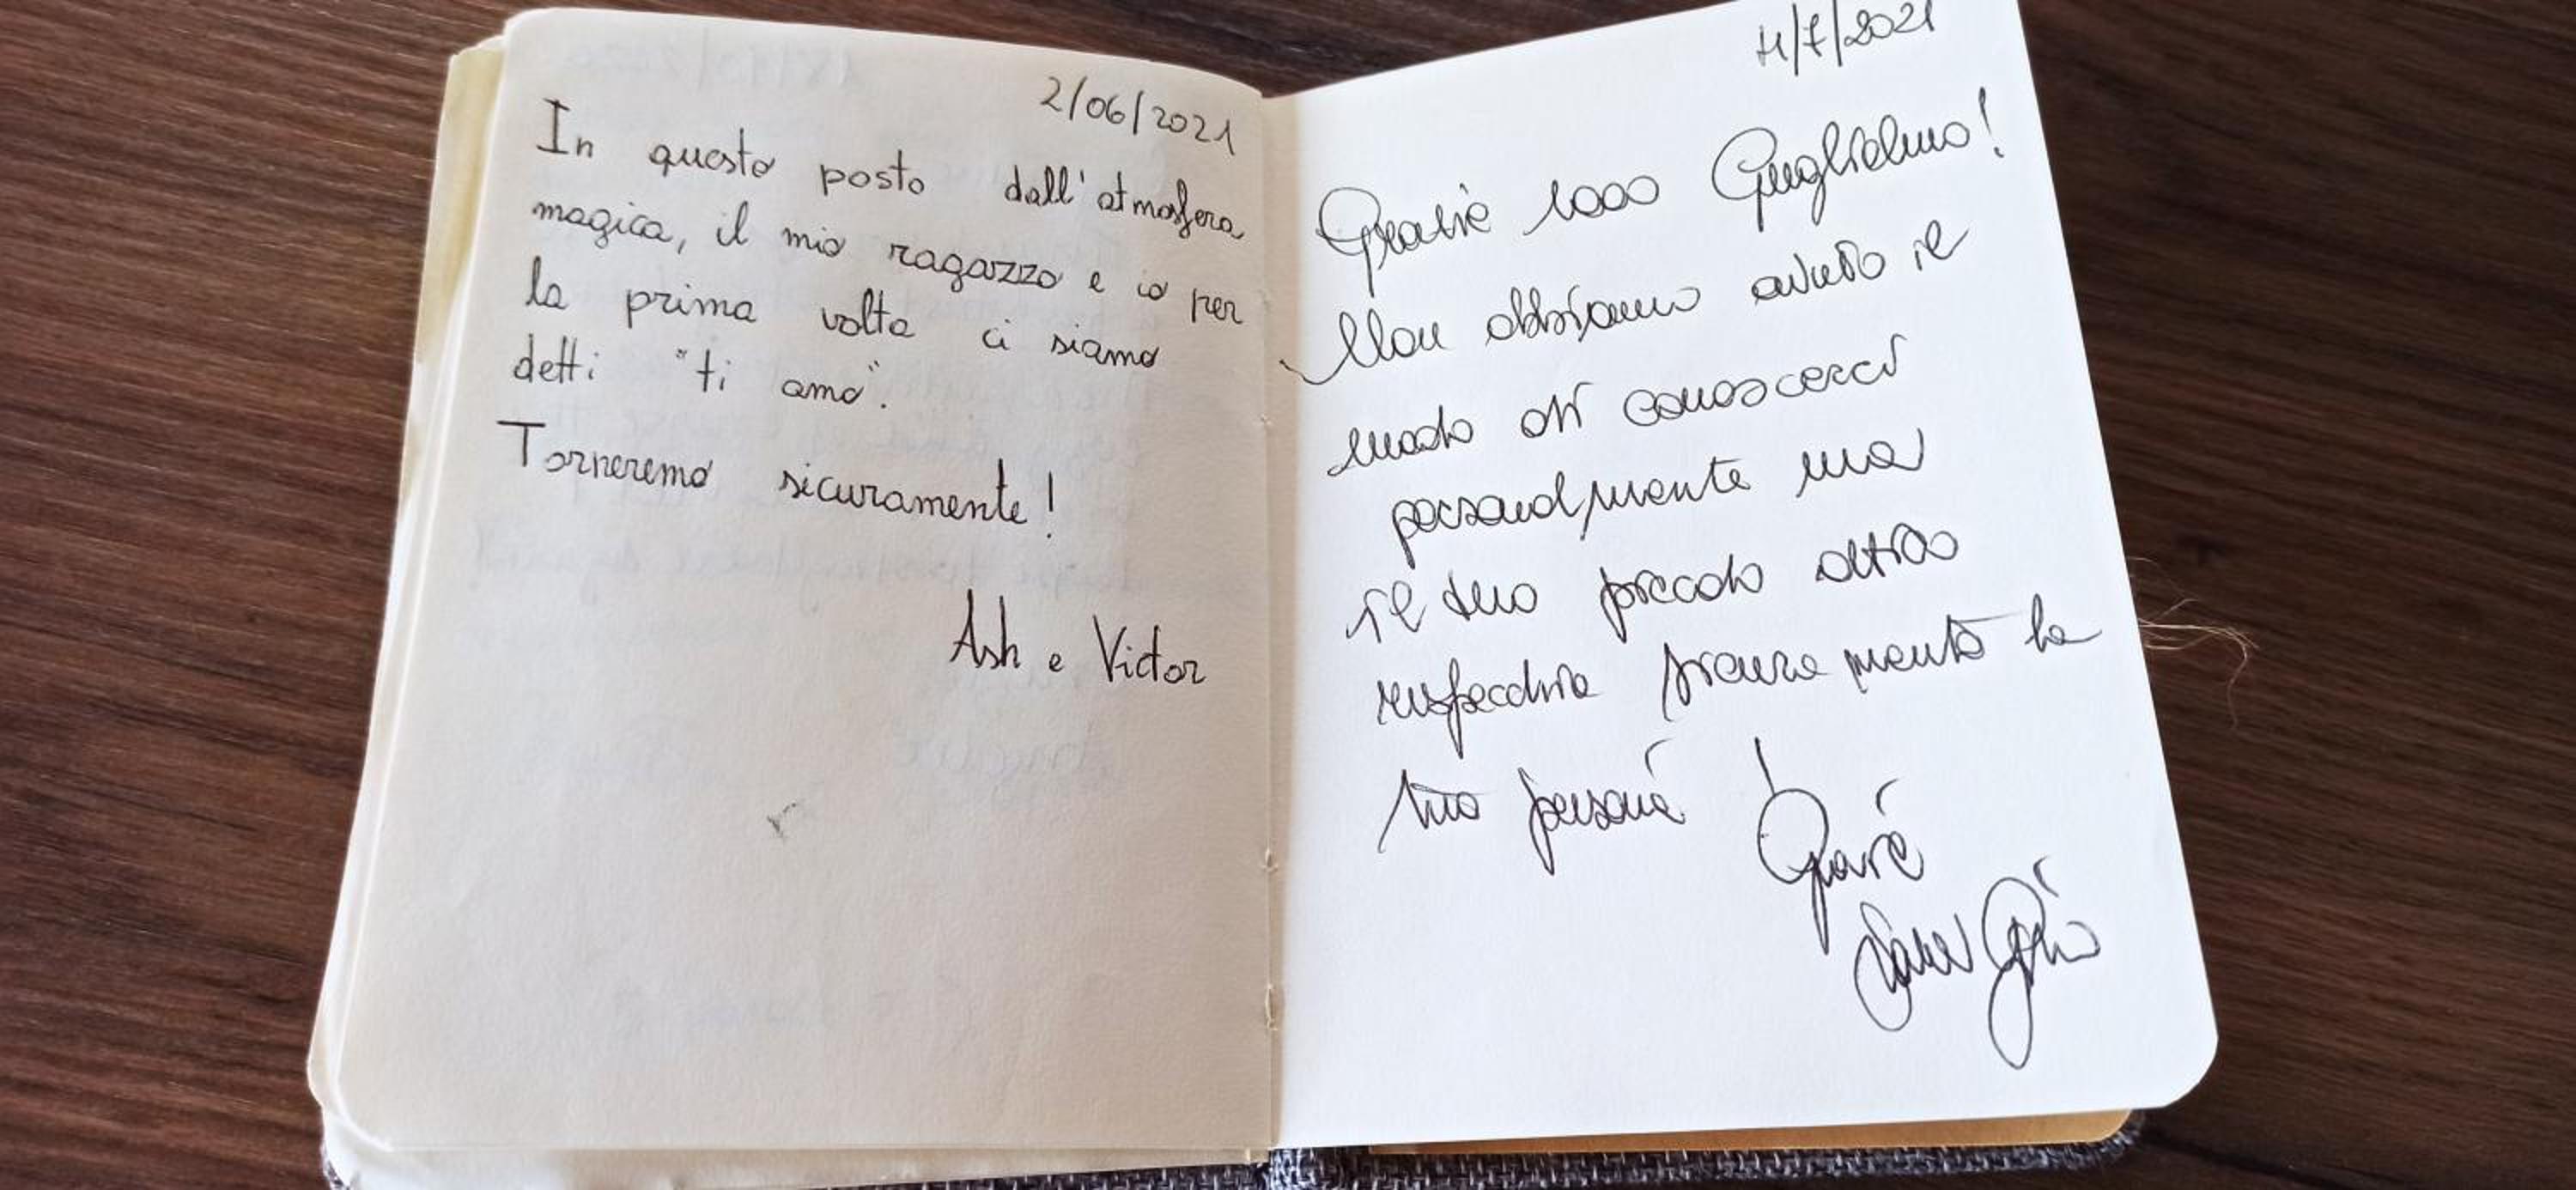 2/06/2021
In questo posto dall'atmosfera
magica, il mio ragazzo e io per
la prima volta ci siamo
detti "ti amo".
Torneremo sicuramente!
Ash e Victor
11/7/2021
Grazie 1000 Guglielmo!
Non abbiamo avuto il
modo di conoscerci
personalmente ma
il tuo piccolo attico
rispecchia sicuramente la
tua persona!